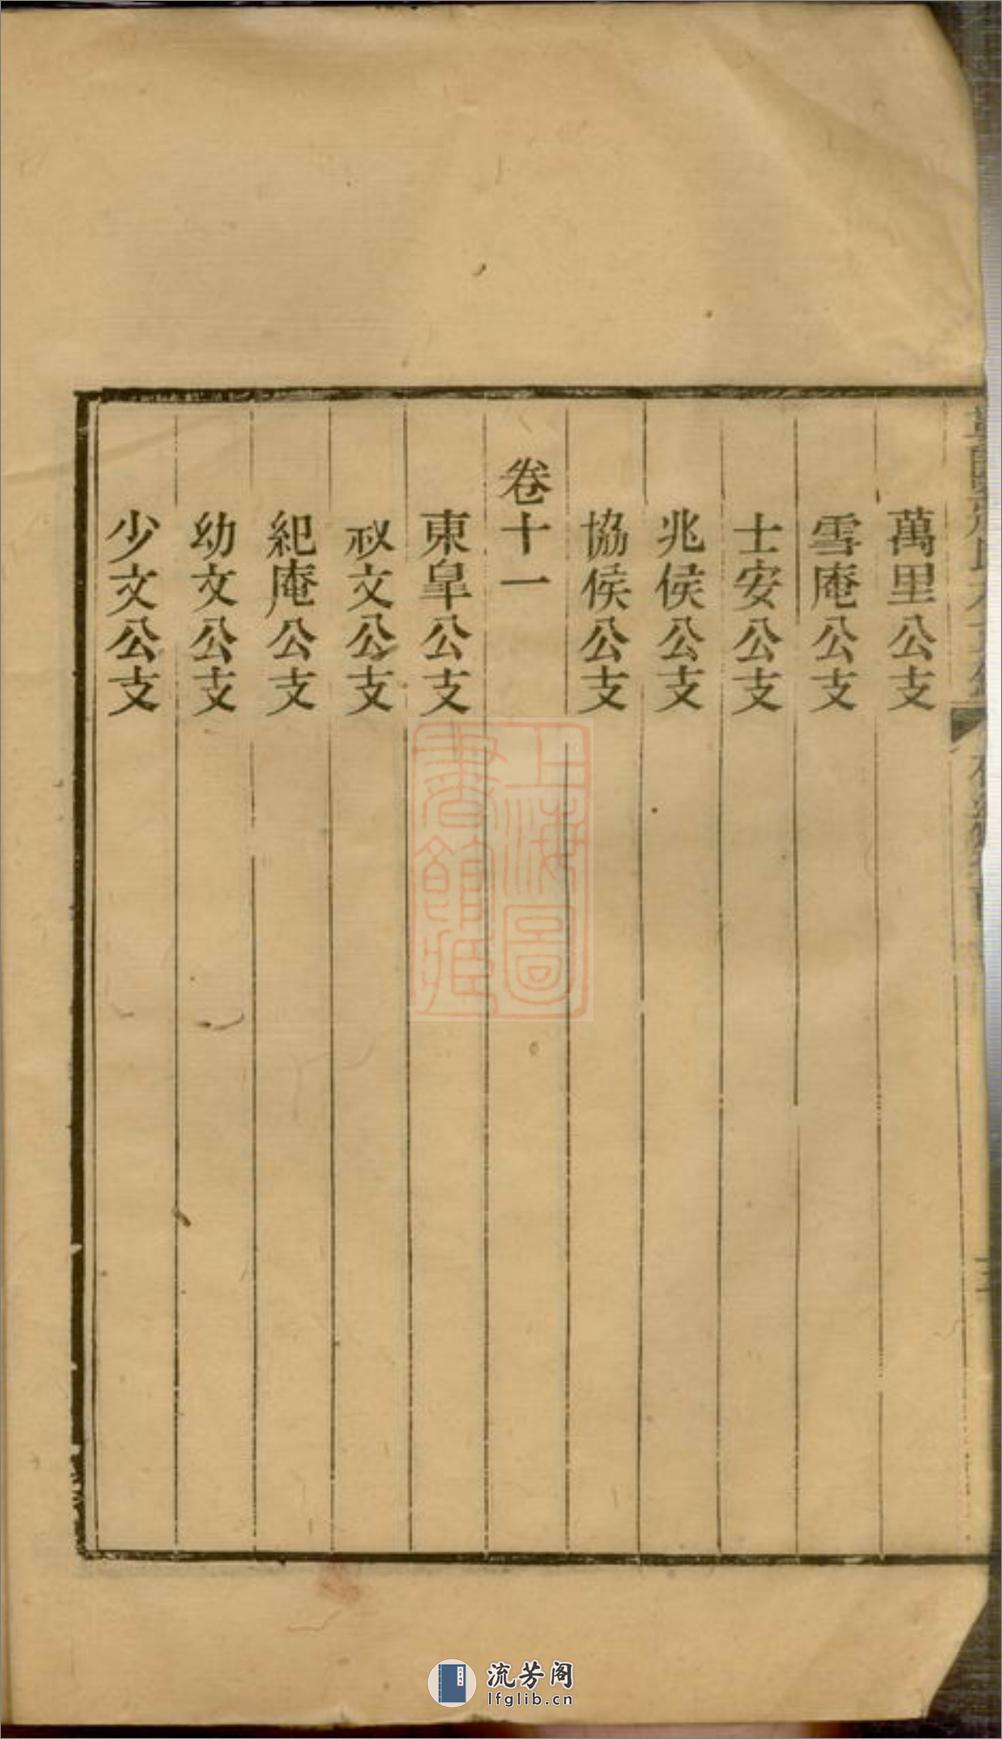 萬里公支
雪庵公支
士安公支
兆侯公支
協侯公支
卷十一
東皐公支
祁文公支
紀庵公支
幼文公支
少文公支
上海圖
書館藏
流芳阁
lfglib.cn